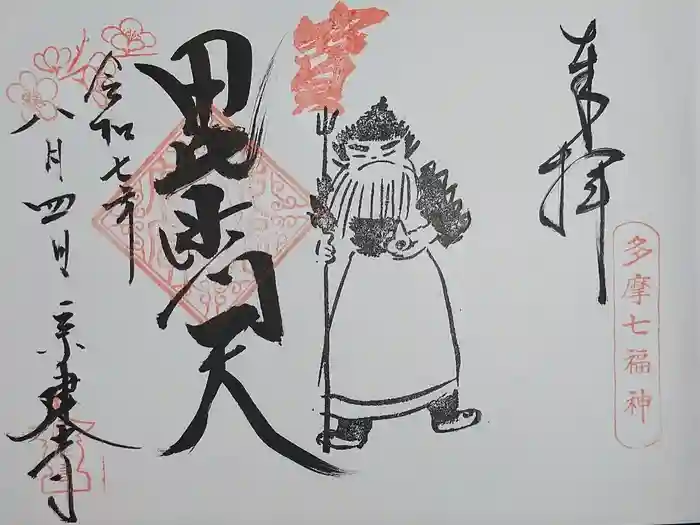 奉拝
多摩七福神
毘沙門天
令和七年
八月四日